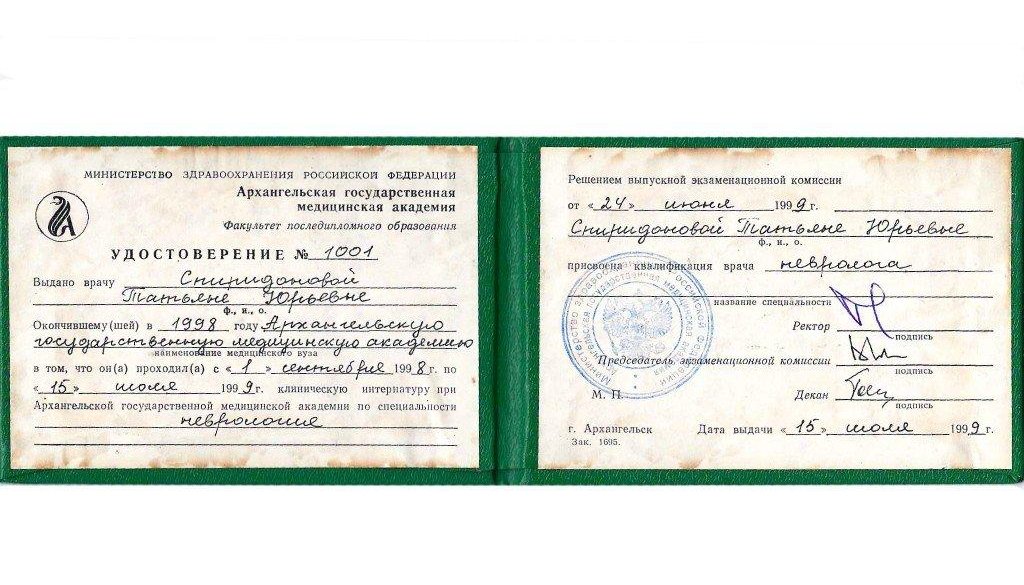 МИНИСТЕРСТВО ЗДРАВООХРАНЕНИЯ РОССИЙСКОЙ ФЕДЕРАЦИИ
Архангельская государственная
медицинская академия
Факультет последипломного образования
УДОСТОВЕРЕНИЕ № 1001
Выдано врачу Спиридоновой
Татьяне Юрьевне
ф., и., о.
Окончившему(шей) в 1998 году Архангельскую
государственную медицинскую академию
наименование медицинского вуза
в том, что он(а) проходил(а) с «1» сентября 1998 г. по
«15» июля 1999 г. клиническую интернатуру при
Архангельской государственной медицинской академии по специальности
неврология
Решением выпускной экзаменационной комиссии
от «24» июня 1999 г.
Спиридоновой Татьяне Юрьевне
ф., и., о.
присвоена квалификация врача невролога
название специальности
Ректор
подпись
Председатель экзаменационной комиссии
подпись
М. П.
Декан
подпись
г. Архангельск Дата выдачи «15» июля 1999 г.
Зак. 1695.